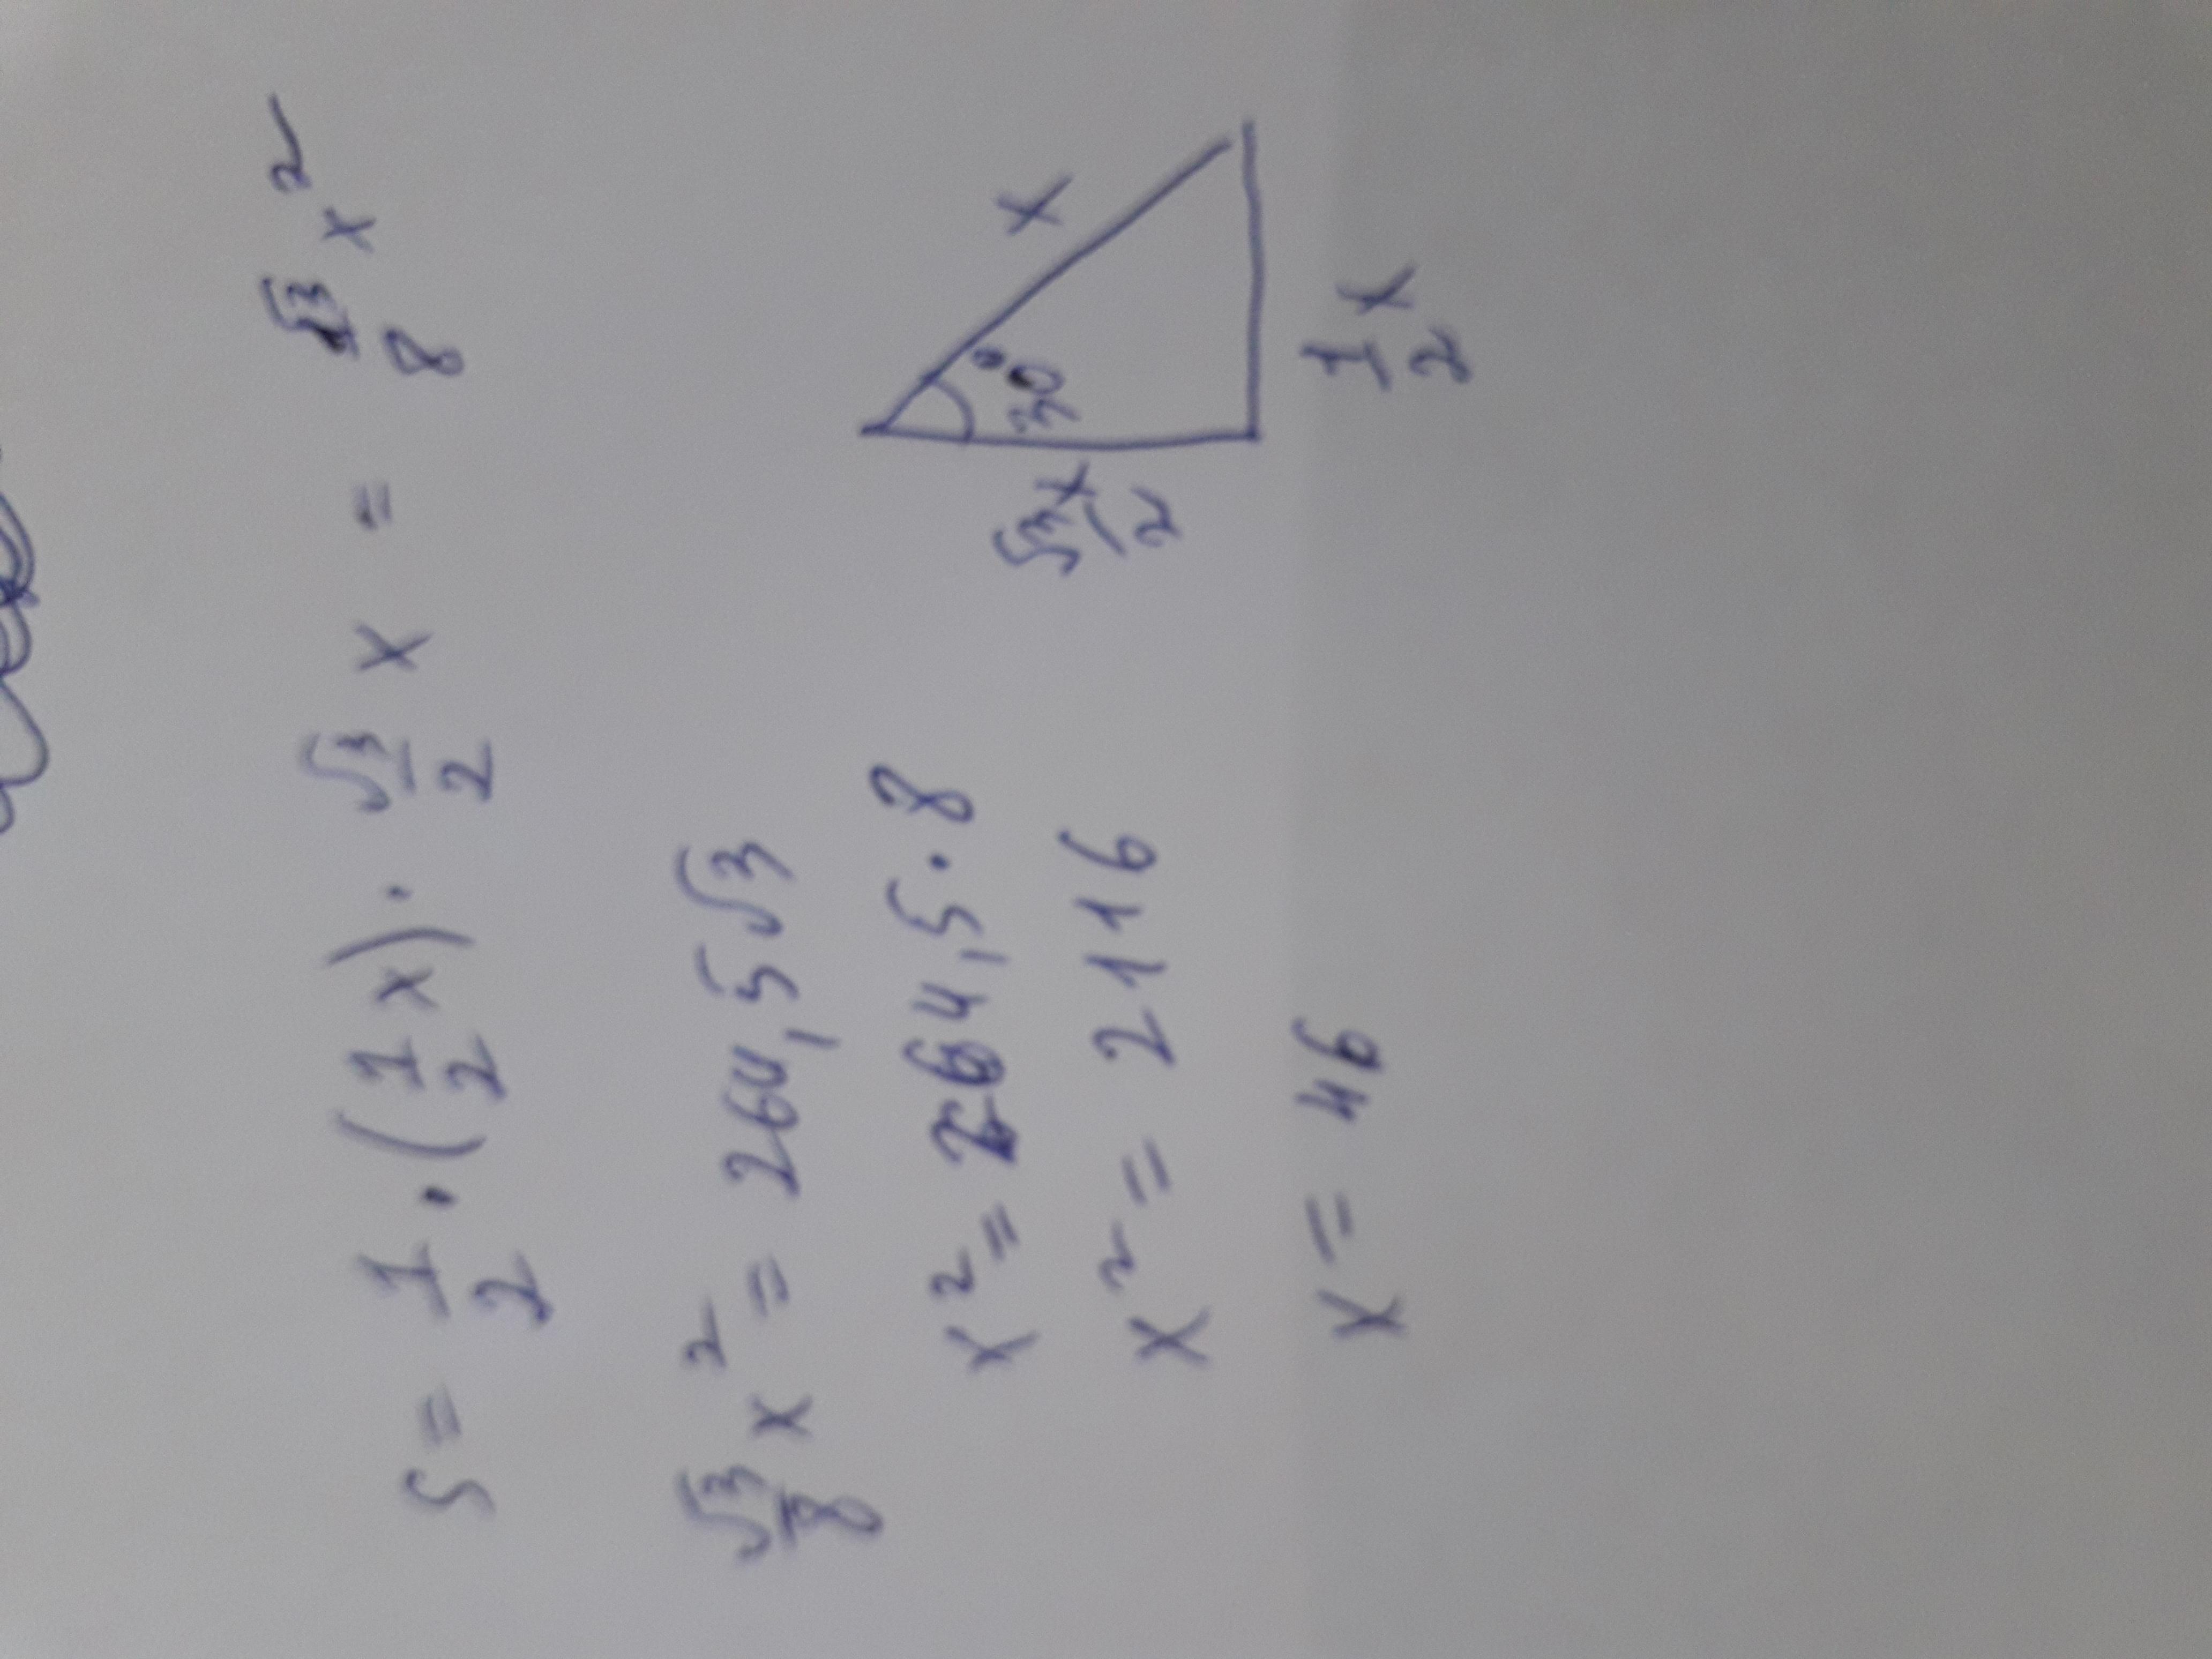 S = 1/2 · (1/2 x) · √3/2 x = √3/8 x²
√3/8 x² = 264,5√3
x² = 264,5 · 8
x² = 2116
x = 46
30°
x
√3x/2
1/2 x